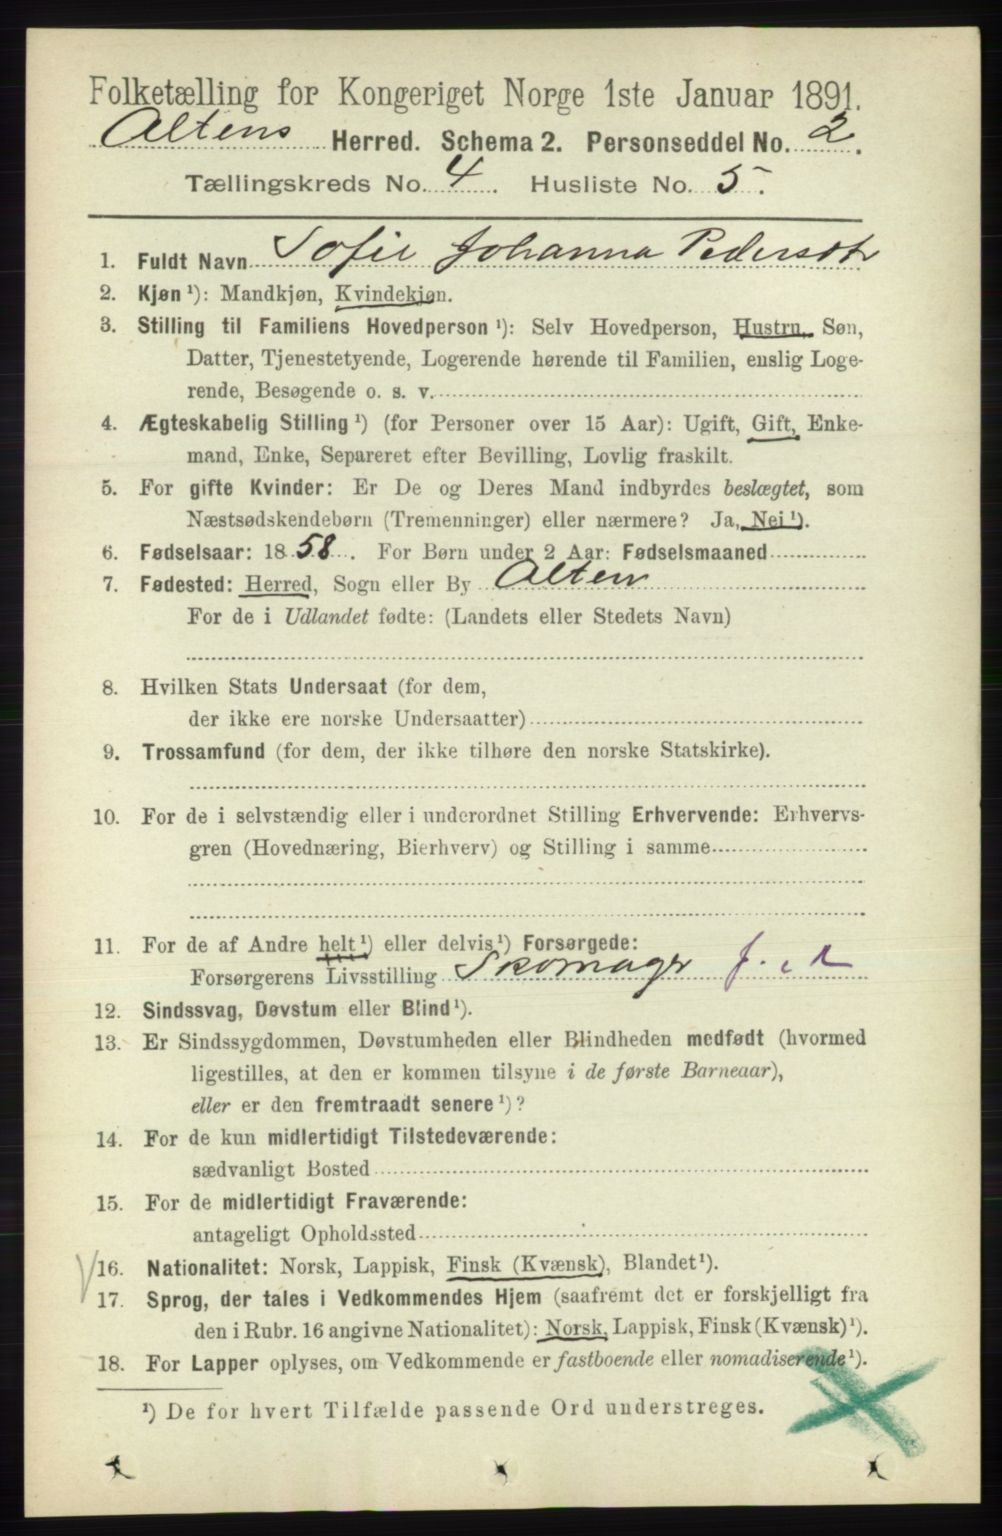 Folketælling for Kongeriget Norge 1ste Januar 1891.
Altens Herred. Schema 2. Personseddel No. 2.
Tællingskreds No. 4. Husliste No. 5.
1. Fuldt Navn Sofie Johanna Pedersdtr
2. Kjøn ¹): Mandkjøn, Kvindekjøn.
3. Stilling til Familiens Hovedperson ¹): Selv Hovedperson, Hustru, Søn,
Datter, Tjenestetyende, Logerende hørende til Familien, enslig Loge-
rende, Besøgende o. s. v.
4. Ægteskabelig Stilling ¹) (for Personer over 15 Aar): Ugift, Gift, Enke-
mand, Enke, Separeret efter Bevilling, Lovlig fraskilt.
5. For gifte Kvinder: Er De og Deres Mand indbyrdes beslægtet, som
Næstsødskendebørn (Tremenninger) eller nærmere? Ja, Nei ¹).
6. Fødselsaar: 1858. For Børn under 2 Aar: Fødselsmaaned
7. Fødested: Herred, Sogn eller By Alten
For de i Udlandet fødte: (Landets eller Stedets Navn)
8. Hvilken Stats Undersaat (for dem,
der ikke ere norske Undersaatter)
9. Trossamfund (for dem, der ikke tilhøre den norske Statskirke).
10. For de i selvstændig eller i underordnet Stilling Erhvervende: Erhvervs-
gren (Hovednæring, Bierhverv) og Stilling i samme
11. For de af Andre helt ¹) eller delvis ¹) Forsørgede:
Forsørgerens Livsstilling Skomager
12. Sindssvag, Døvstum eller Blind ¹).
13. Er Sindssygdommen, Døvstumheden eller Blindheden medfødt (hvormed
ligestilles, at den er kommen tilsyne i de første Barneaar),
eller er den fremtraadt senere ¹)?
14. For de kun midlertidigt Tilstedeværende:
sædvanligt Bosted
15. For de midlertidigt Fraværende:
antageligt Opholdssted
16. Nationalitet: Norsk, Lappisk, Finsk (Kvænsk), Blandet ¹).
17. Sprog, der tales i Vedkommendes Hjem (saafremt det er forskjelligt fra
den i Rubr. 16 angivne Nationalitet): Norsk, Lappisk, Finsk (Kvænsk) ¹).
18. For Lapper oplyses, om Vedkommende er fastboende eller nomadiserende ¹).
¹) De for hvert Tilfælde passende Ord understreges.